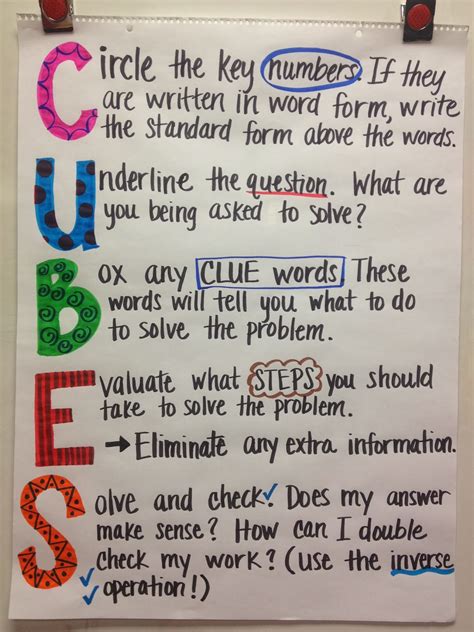 Circle the key numbers. If they
are written in word form, write
the standard form above the words.
Underline the question. What are
you being asked to solve?
Box any CLUE words. These
words will tell you what to do
to solve the problem.
Evaluate what STEPS you should
take to solve the problem.
→ Eliminate any extra information.
Solve and check. Does my answer
make sense? How can I double
check my work? (use the inverse
operation!)